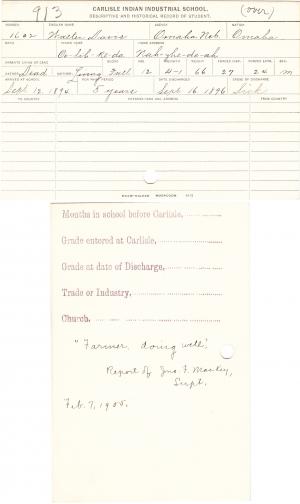 913 CARLISLE INDIAN INDUSTRIAL SCHOOL. (over)
DESCRIPTIVE AND HISTORICAL RECORD OF STUDENT.
NUMBER ENGLISH NAME AGENCY NATION
1602 Walter Davis Omaha Neb Omaha
BAND INDIAN NAME HOME ADDRESS
PARENTS LIVING OR DEAD BLOOD AGE HEIGHT WEIGHT FORCED INSP. FORCED EXPR. SEX
FATHER Dead MOTHER Living Full 12 4-1 66 27 24 m
ARRIVED AT SCHOOL FOR WHAT PERIOD DATE DISCHARGED CAUSE OF DISCHARGE
Sept 12, 1894 5 years Sept 16 1896 Sick
TO COUNTRY PATRONS NAME AND ADDRESS FROM COUNTRY
Months in school before Carlisle,
Grade entered at Carlisle,
Grade at date of Discharge,
Trade or Industry,
Church.
"Farmer, doing well".
Report of Jno. F. Mackey,
Supt.